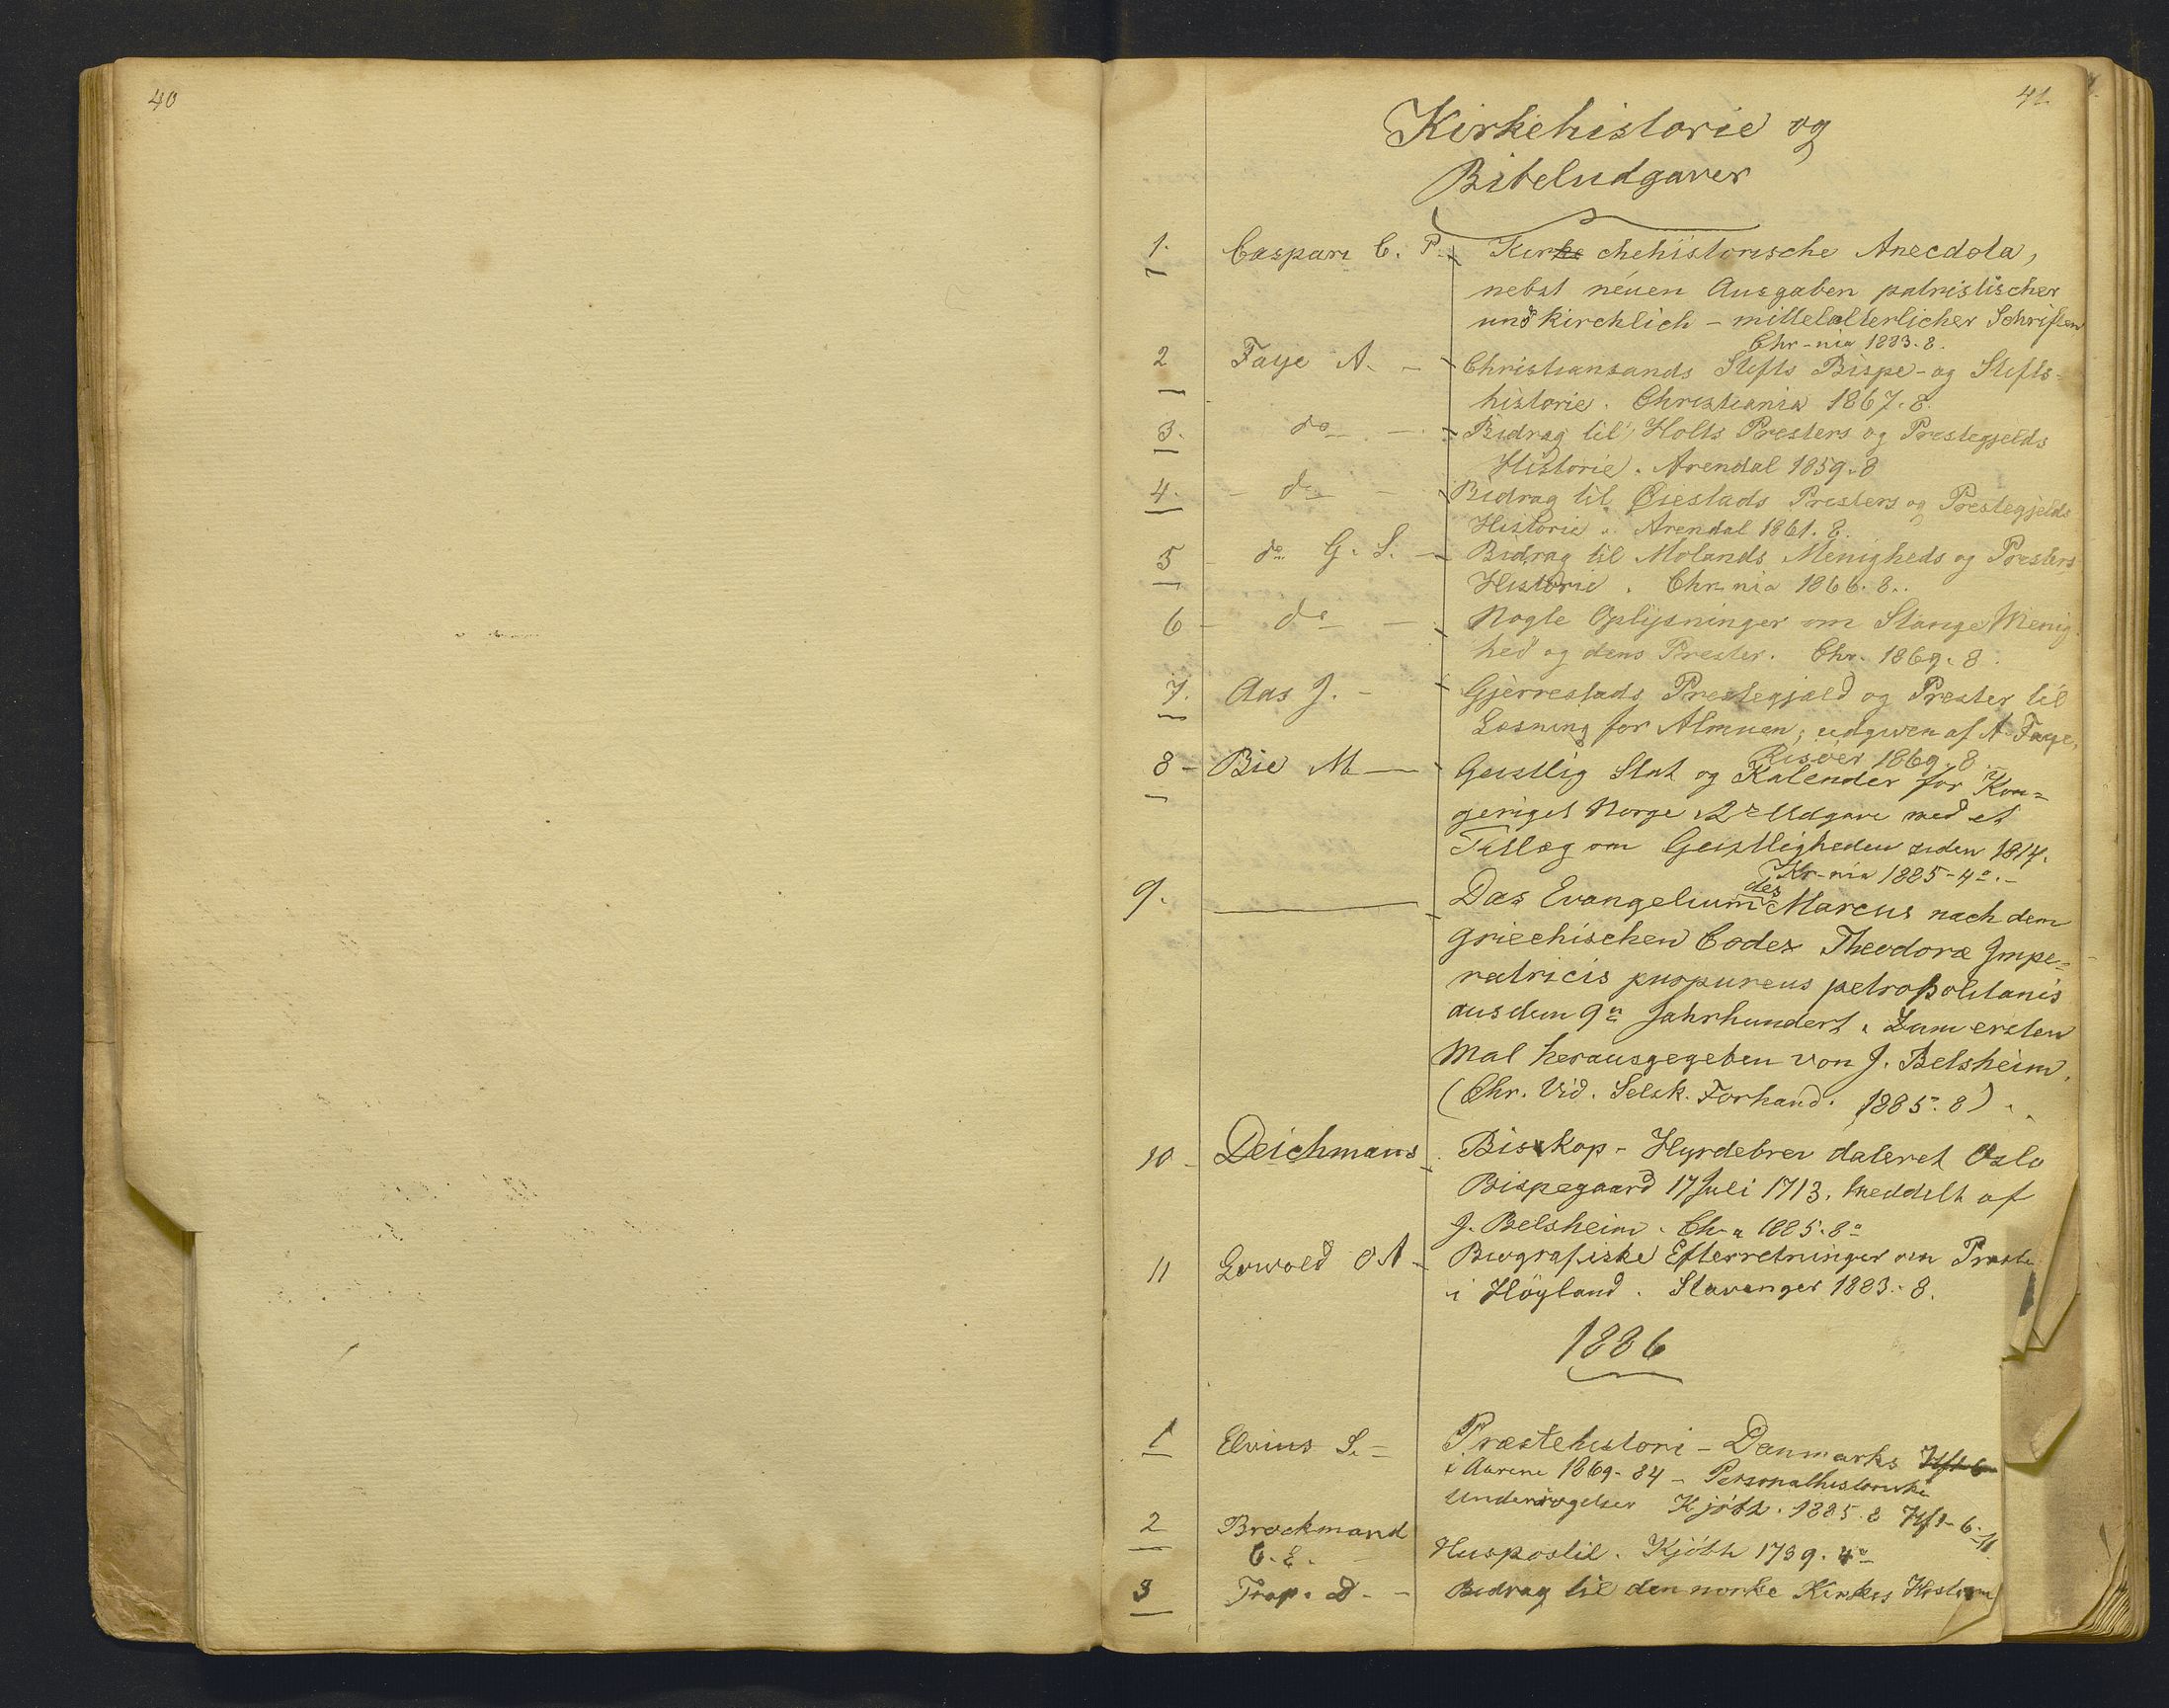 40
41.
Kirkehistorie og
Bibeludgaver
1. Caspari C. P. Kirke chehistorische Anecdota,
nebst neuen Ausgaben patristischer
und kirchlich - mittelalterlicher Schriften
Chr-nia 1883. 8.
2 Faye A. - Christiansands Stifts Bispe- og Stifts-
historie. Christiania 1867. 8.
3. do - Bidrag til Holts Presters og Prestegjelds
Historie. Arendal 1859. 8
4. - do - Bidrag til Øiestads Presters og Prestegjelds
Historie. Arendal 1861. 8.
5 - do G. S. - Bidrag til Molands Menigheds og Presters
Historie. Chr-nia 1866. 8.
6 - do - Nogle Oplysninger om Stange Menig-
hed og dens Prester. Chr. 1869. 8.
7. Aas J. - Gjerrestads Prestegjeld og Prester til
Læsning for Almuen, udgiven af A. Faye,
Risöer 1869. 8
8 - Bie M - Geistlig Stat og Kalender for Kon=
geriget Norge 2n Udgave med et
Tillæg om Geistligheden siden 1814.
Kr-nia 1885 - 4o. -
9. Das Evangelium des Marcus nach dem
griechischen Codex Theodoræ Impe=
ratricis purpureus petropolitanis
aus dem 9n Jahrhundert. Zum ersten
Mal herausgegeben von J. Belsheim.
(Chr. Vid. Selsk. Forhand. 1885. 8)
10 - Deichmans Biskop - Hyrdebrev dateret Oslo
Bispegaard 17 Juli 1713. meddelt af
J. Belsheim. Chr-a 1885. 8o
11 O A - Biografiske Efterretninger om Preste
i Höyland. Stavanger 1883. 8.
1886
1 Elvius S. - Præstehistori - Danmarks Hft 6
i Aarene 1869-84 - Personalhistoriske
Undersögelser Kjöbh. 1885. 8 Hft - 6-
2 Brockmand
C. E. - Huspostil. Kjöbh 1739. 4o
3 Trap. D. - Bidrag til den norske Kirkes Historie